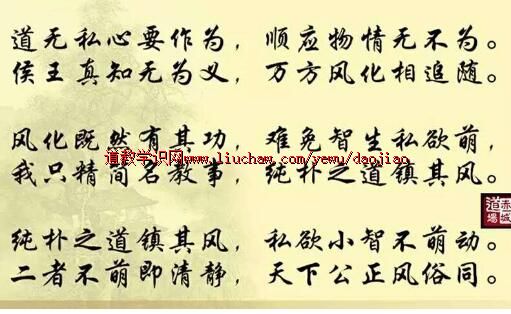 道无私心要作为，顺应物情无不为。
侯王真知无为义，万方风化相追随。
风化既然有其功，难免智生私欲萌，
道教学识网www.liuchaw.com/yewu/daojiao
我只精简名教事，纯朴之道镇其风。
纯朴之道镇其风，私欲小智不萌动。
二者不萌即清静，天下公正风俗同。
赤城
道場